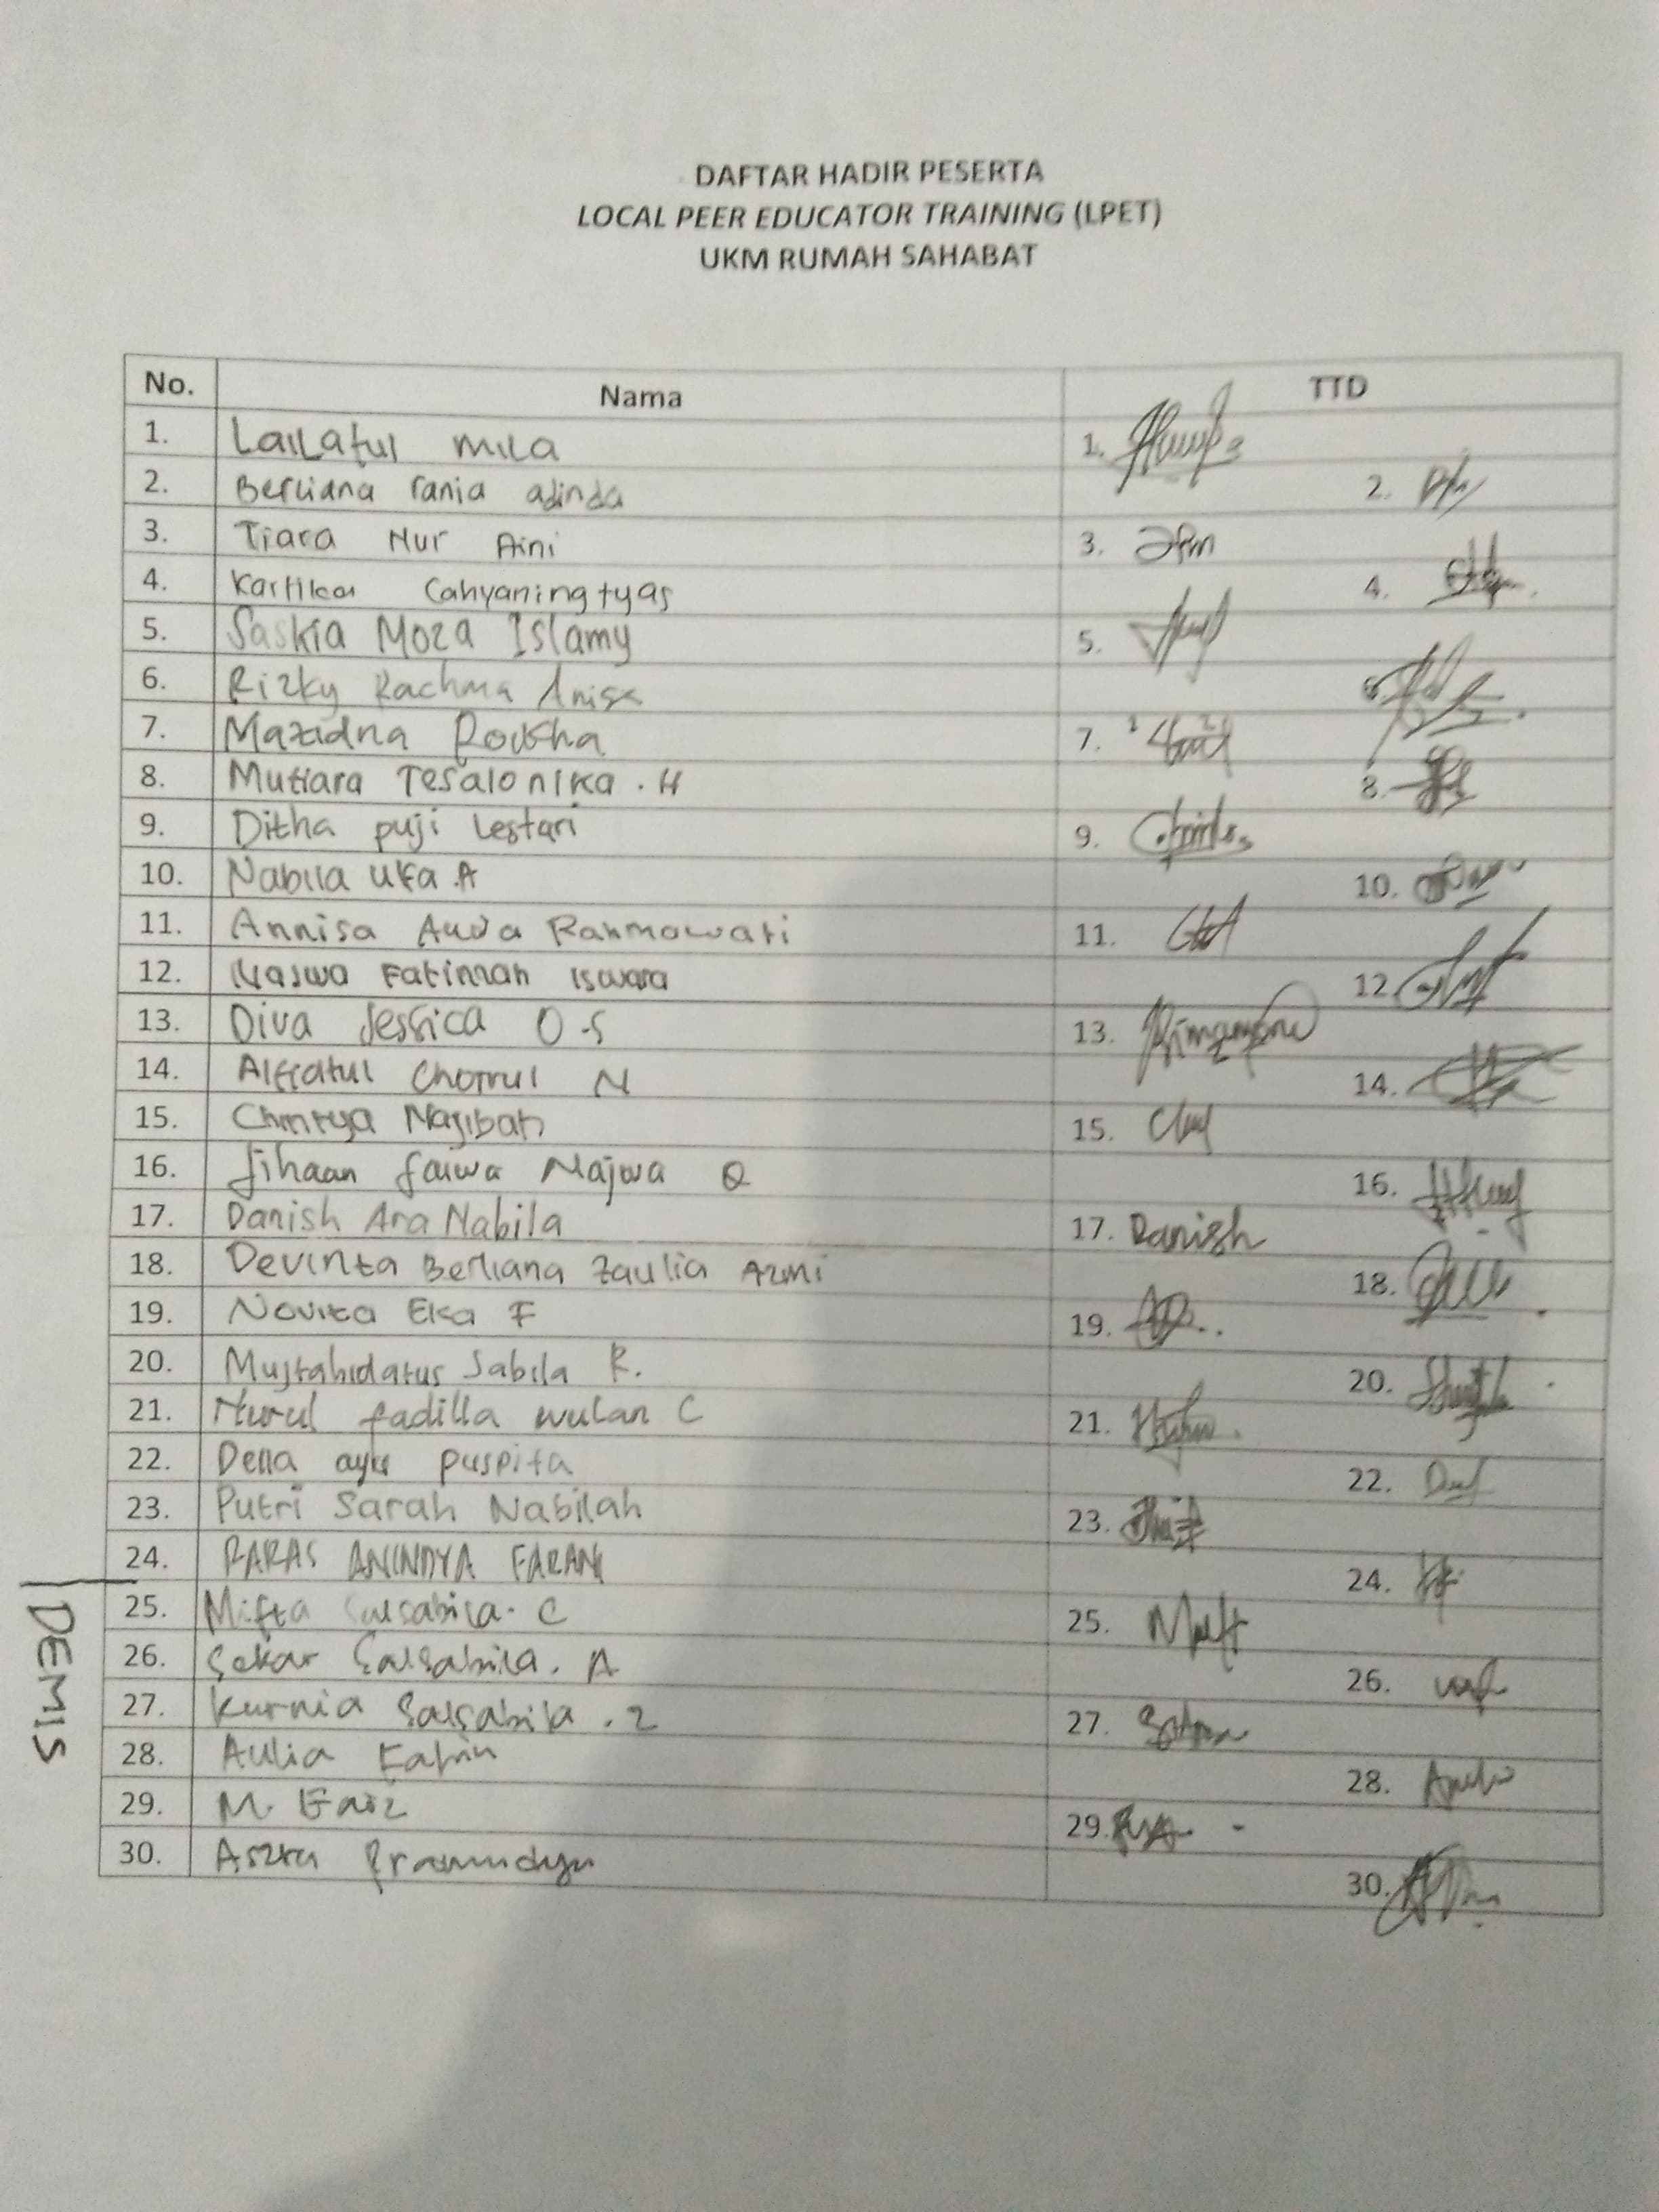 DAFTAR HADIR PESERTA
LOCAL PEER EDUCATOR TRAINING (LPET)
UKM RUMAH SAHABAT
No. Nama TTD
1. Lailatul Mila 1.
2. Berliana rania adinda 2.
3. Tiara Nur Aini 3.
4. Kartika Cahyaningtyas 4.
5. Saskia Moza Islamy 5.
6. Rizky Rachma Anisa 6.
7. Mazidna 7.
8. Mutiara Tesalonika . H 8.
9. Ditha puji lestari 9.
10. Nabila Ulfa .A 10.
11. Annisa Aulia Rahmawati 11.
12. Naswa Fatimah Iswara 12.
13. Diva Jessica O.S 13.
14. N 14.
15. Najibah 15.
16. Jihaan faiwa Najwa Q 16.
17. Danish Ara Nabila 17. Danish
18. Devinta Berliana Zaulia Azmi 18.
19. Novita Eka F 19.
20. Mujtahidatus Sabila R. 20.
21. Nurul fadilla wulan C 21.
22. Della ayu puspita 22.
23. Putri Sarah Nabilah 23.
24. PARAS ANINDYA 24.
25. Mifta Salsabila. C 25.
26. Sekar Salsabila. A 26.
27. Kurnia Salsabila . Z 27.
28. Aulia 28.
29. M. Faiz 29.
30. Pramudya 30.
DEMIS